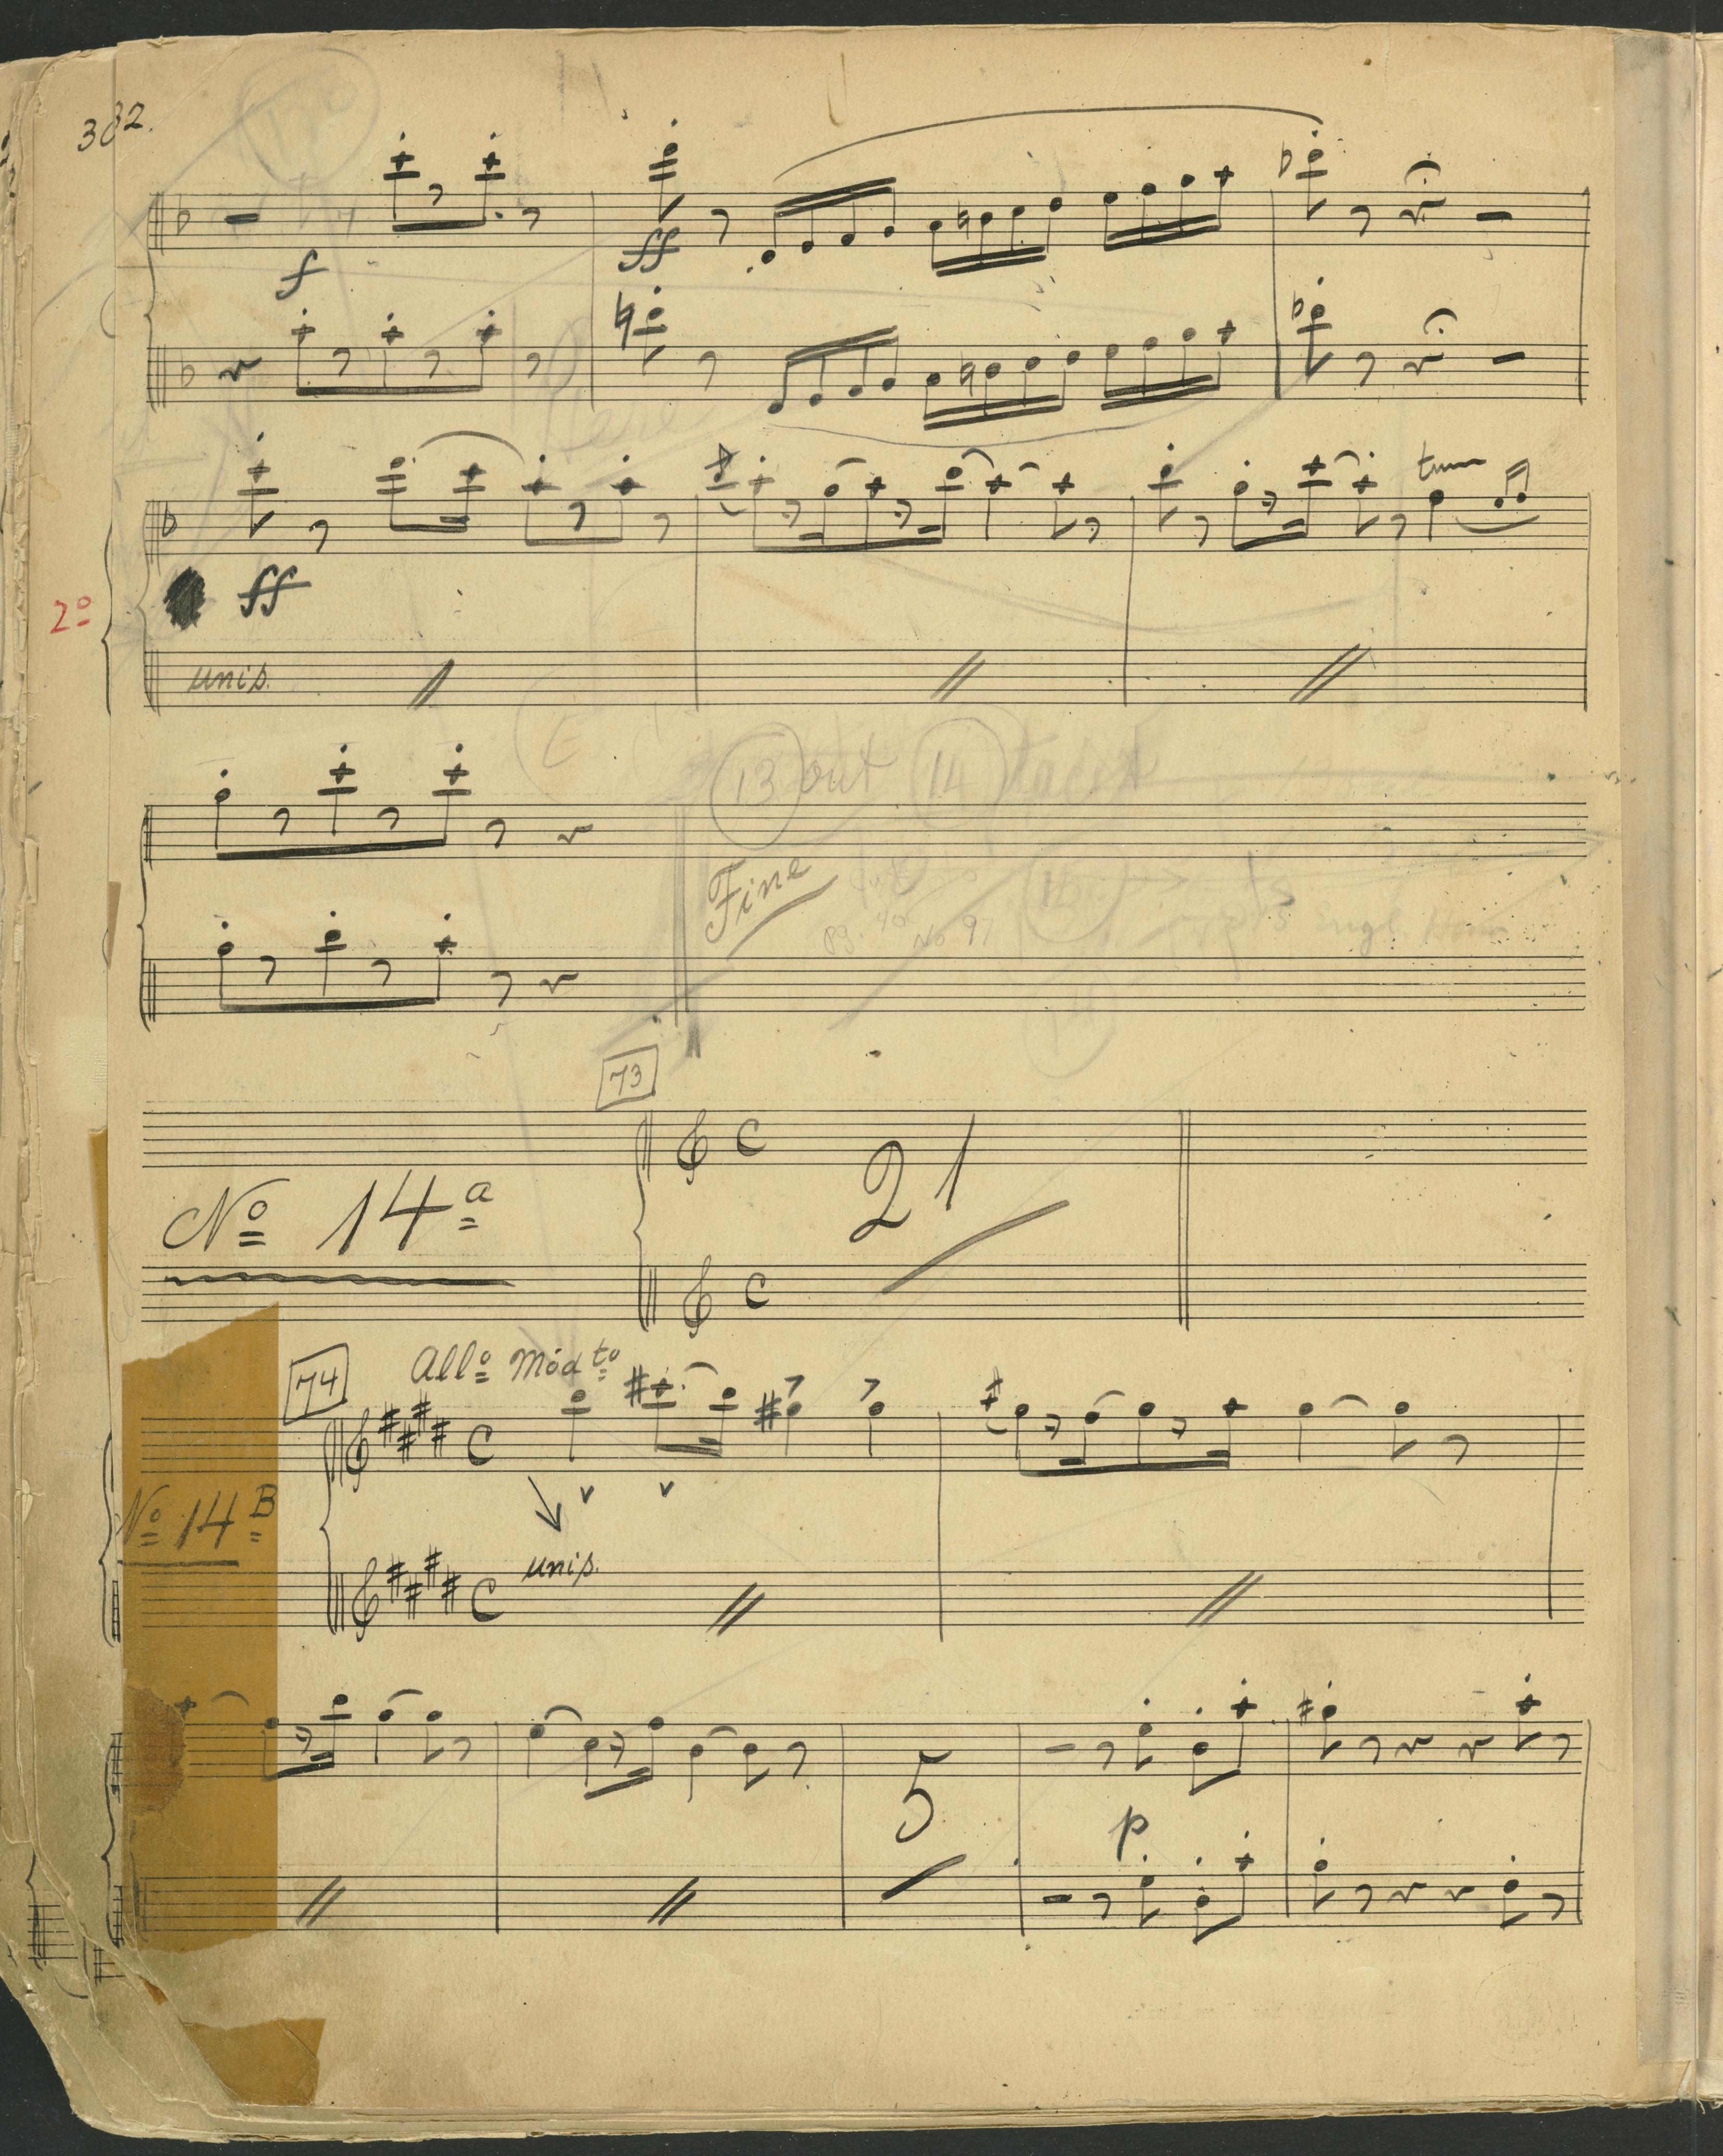 382.
f
ff
tr
2º
ff
unis.
13 out 14 tacet
Fine
pg. 40 No 97
Engl. Horn
73
Nº 14ª
C
21
C
74
Allº Modto
C
Nº 14B
unis.
C
5
p